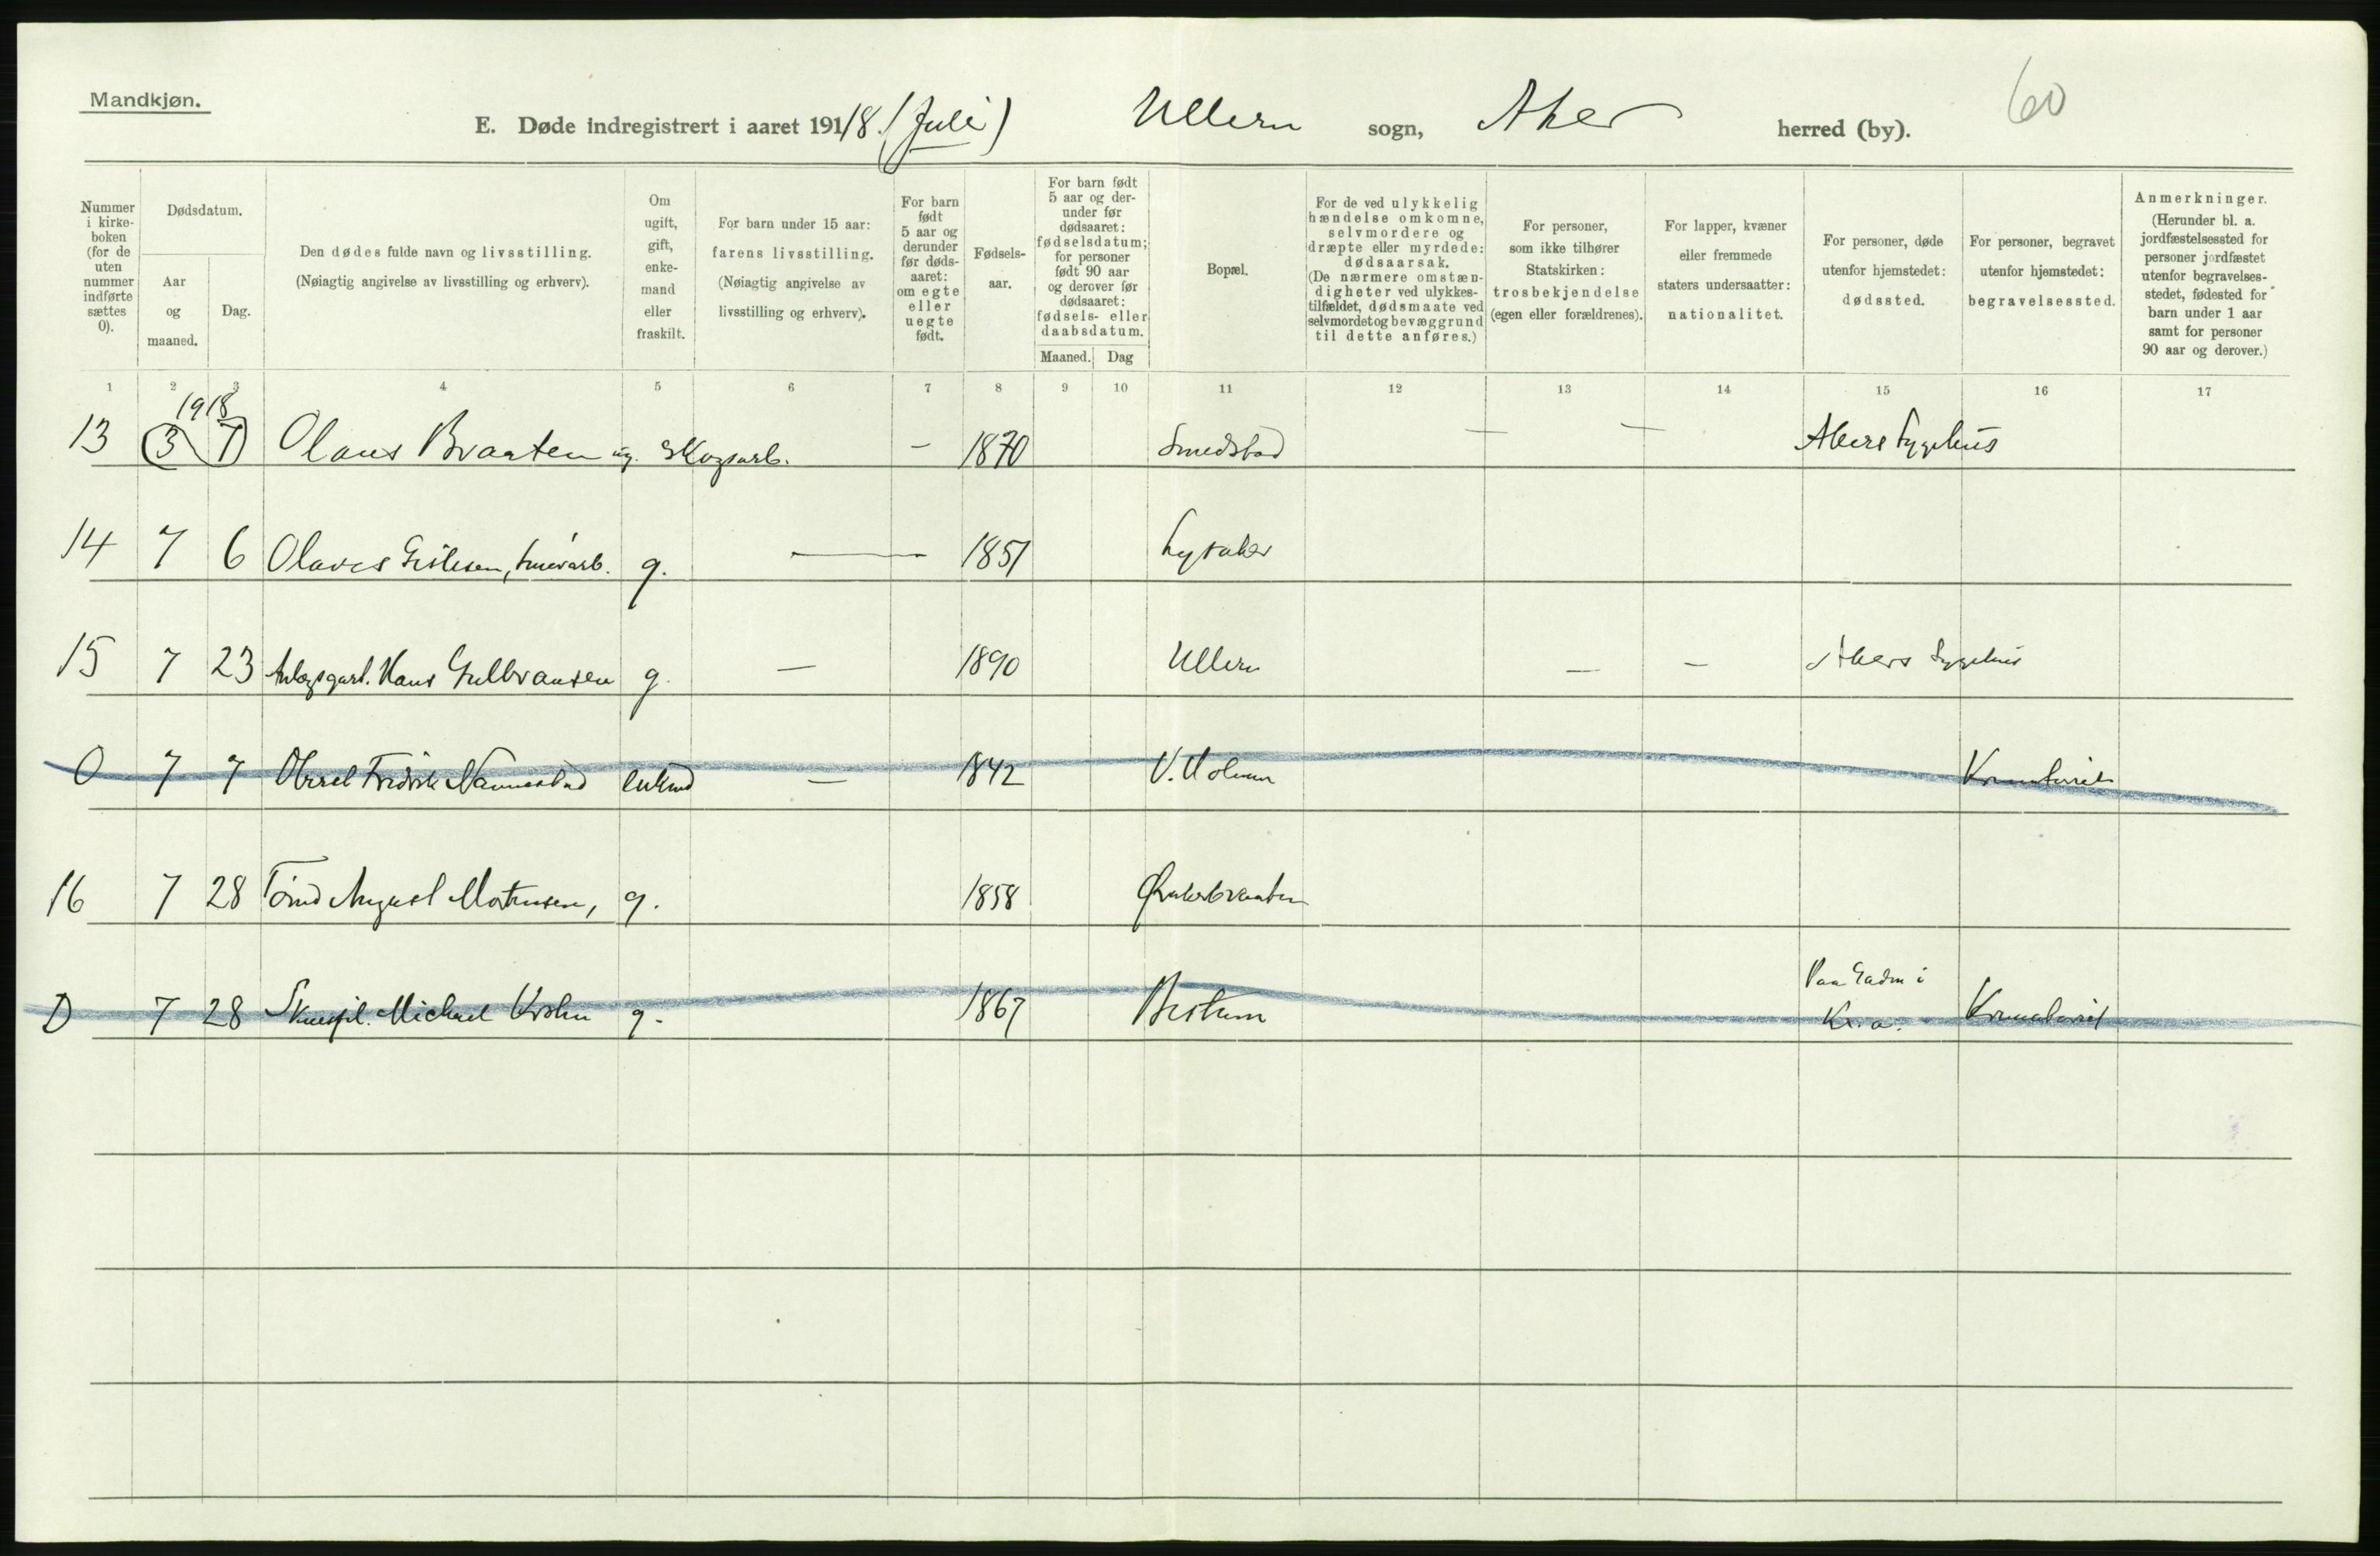 Mandkjøn.
E. Døde indregistrert i aaret 1918 (Juli) Ullern sogn, Aker herred (by). 60
Nummer i kirke-boken (for de uten nummer indførte sættes 0).
Dødsdatum.
Aar og maaned.
Dag.
Den dødes fulde navn og livsstilling.
(Nøiagtig angivelse av livsstilling og erhverv).
Om ugift, gift, enke-mand eller fraskilt.
For barn under 15 aar: farens livsstilling.
(Nøiagtig angivelse av livsstilling og erhverv).
For barn født 5 aar og derunder før døds-aaret: om egte eller uegte født.
Fødsels-aar.
For barn født 5 aar og der-under før dødsaaret: fødselsdatum; for personer født 90 aar og derover før dødsaaret: fødsels- eller daabsdatum.
Maaned. Dag
Bopæl.
For de ved ulykkelig hændelse omkomne, selvmordere og dræpte eller myrdede: dødsaarsak.
(De nærmere omstæn-digheter ved ulykkes-tilfældet, dødsmaate ved selvmordet og bevæggrund til dette anføres.)
For personer, som ikke tilhører Statskirken: trosbekjendelse (egen eller forældrenes).
For lapper, kvæner eller fremmede staters undersaatter: nationalitet.
For personer, døde utenfor hjemstedet: dødssted.
For personer, begravet utenfor hjemstedet: begravelsessted.
Anmerkninger.
(Herunder bl. a. jordfæstelsessted for personer jordfæstet utenfor begravelses-stedet, fødested for barn under 1 aar samt for personer 90 aar og derover.)
1 2 3 4 5 6 7 8 9 10 11 12 13 14 15 16 17
1918
13 3 7 Olaus Braaten ug. Skogsarb. - 1870 Smedstad - - Akers Sygehus
14 7 6 Olaves g. - 1851 Lysaker
15 7 23 Anlægsgart. Hans Gulbransen g. - 1890 Ullern - - Akers Sygehus
0 7 7 Fredrik Nannestad enkmd - 1842 V. Holmen Krematoriet
16 7 28 August g. 1858 Øraker
0 7 28 Skuespil. Michael Krohn g. 1867 Bestum Paa Gaden i Kr.a. Krematoriet